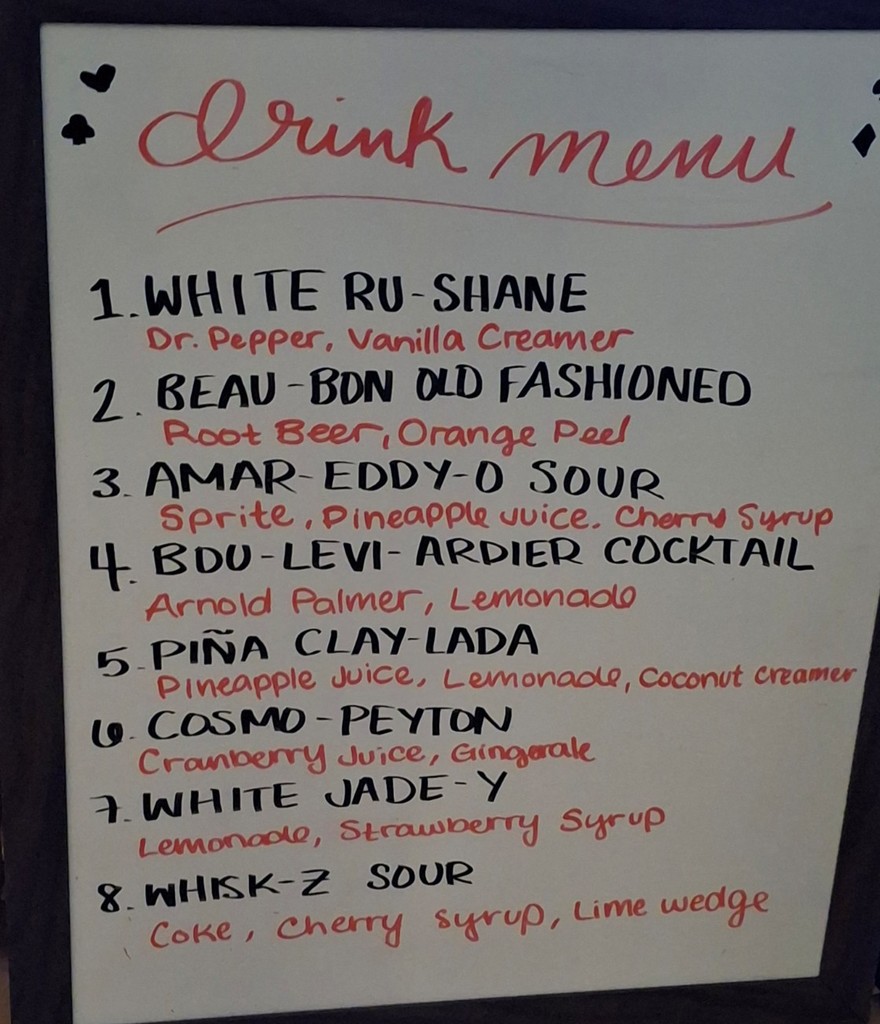 drink menu
1. WHITE RU-SHANE
Dr. Pepper, Vanilla Creamer
2. BEAU-BON OLD FASHIONED
Root Beer, Orange Peel
3. AMAR-EDDY-O SOUR
Sprite, Pineapple Juice. Cherry Syrup
4. BOU-LEVI-ARDIER COCKTAIL
Arnold Palmer, Lemonade
5. PIÑA CLAY-LADA
Pineapple Juice, Lemonade, Coconut Creamer
6. COSMO-PEYTON
Cranberry Juice, Gingerale
7. WHITE JADE-Y
Lemonade, Strawberry Syrup
8. WHISK-Z SOUR
Coke, Cherry syrup, Lime wedge